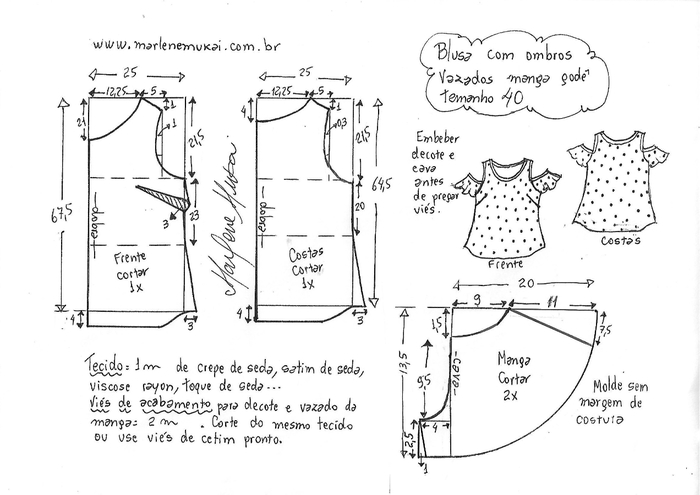 www.marlenemukai.com.br
Blusa com ombros
vazados manga godê
tamanho 40
25
12,25
5
1
21
1
21,5
67,5
dobra
3
23
Frente
cortar
1x
4
3
Marlene Mukai
25
12,25
5
1
4
0,3
21,5
64,5
20
dobra
Costas
cortar
1x
4
3
Embeber
decote e
cava
antes
de pregar
viés.
Frente
Costas
20
9
11
1,5
7,5
13,5
9,5
cava
Manga
Cortar
2x
4
2,5
1
Molde sem
margem de
costura
Tecido = 1 m de crepe de seda, satim de seda,
viscose rayon, toque de seda...
viés de acabamento para decote e vazado da
manga = 2 m . Corte do mesmo tecido
ou use viés de cetim pronto.